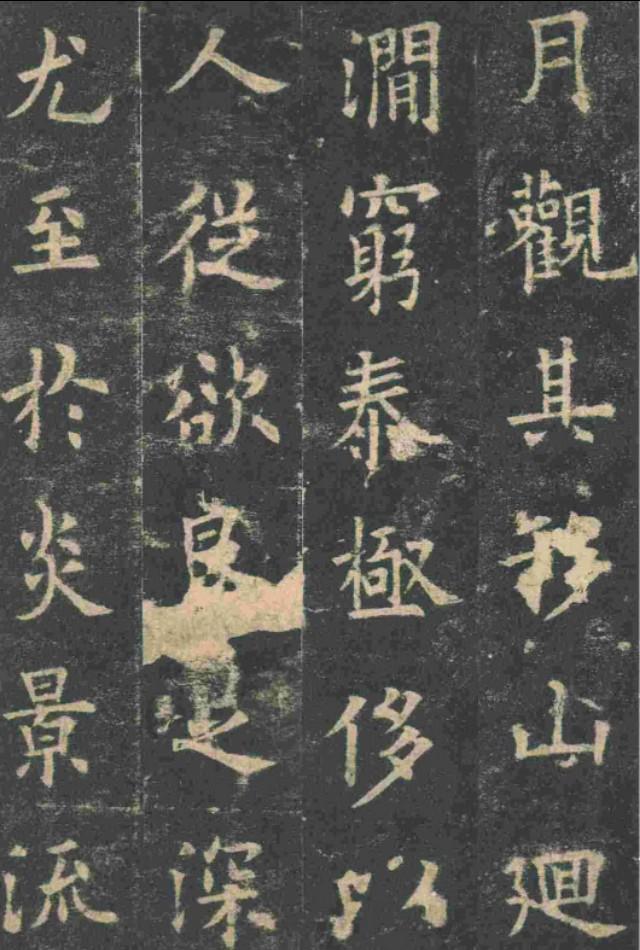 月觀其移山廻
澗窮泰極侈以
人從欲良之深
尤至於炎景流